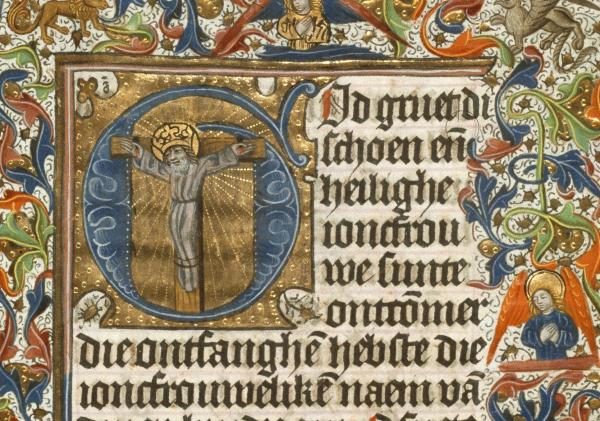 God gruet di
schoen eñ
heilighe
ioncfrou
we sunte
ontcōmer
die ontfanghē hebste die
ioncfrouwelikē naem vā